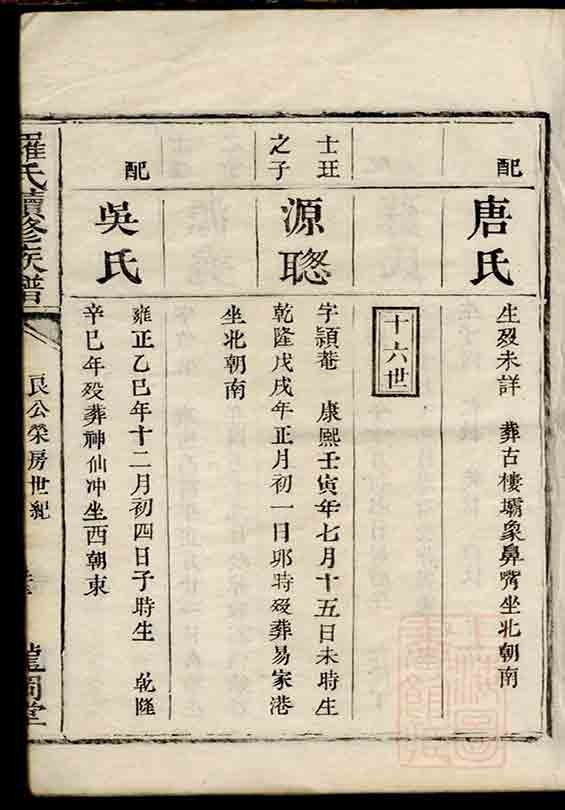 配
唐氏
生歿未詳　葬古樓壩象鼻嘴坐北朝南
十六世
士玨
之子
源聰
字頴菴　康熙壬寅年七月十五日未時生
乾隆戊戌年正月初一日卯時歿葬易家港
坐北朝南
配
吳氏
雍正乙巳年十二月初四日子時生　乾隆
辛巳年歿葬神仙冲坐西朝東
羅氏續修族譜
良公榮房世紀